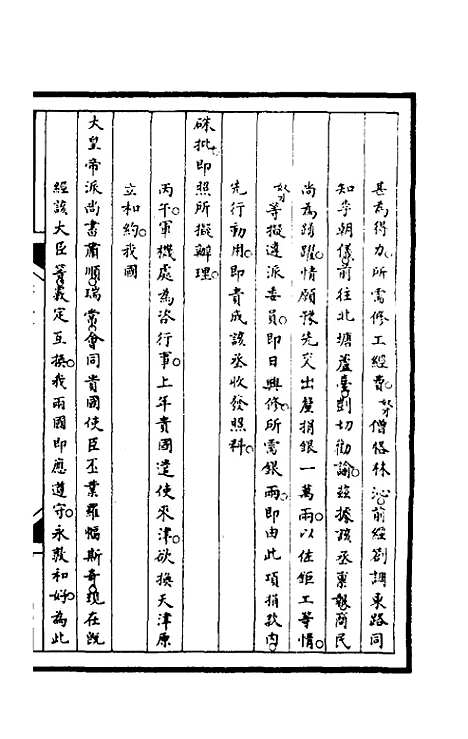 甚為得力。所需修工經費。奴才僧格林沁前經劄調東路同
知李朝儀。前往北塘蘆臺。剴切勸諭。茲據該丞稟報。商民
尚為踴躍。情願豫先交出釐捐銀一萬兩。以佐鉅工等情。
奴才等擬遴派委員。即日興修。所需銀兩。即由此項捐款內。
先行動用。即責成該丞收發照料。
硃批。即照所擬辦理。
丙午。軍機處為咨行事。上年貴國遣使來津。欲換天津原
立和約。我國
大皇帝派尚書肅順。瑞常。會同貴國使臣丕業羅幅斯奇。現在既
經該大臣等。義定互換。我兩國即應遵守。永敦和好。為此